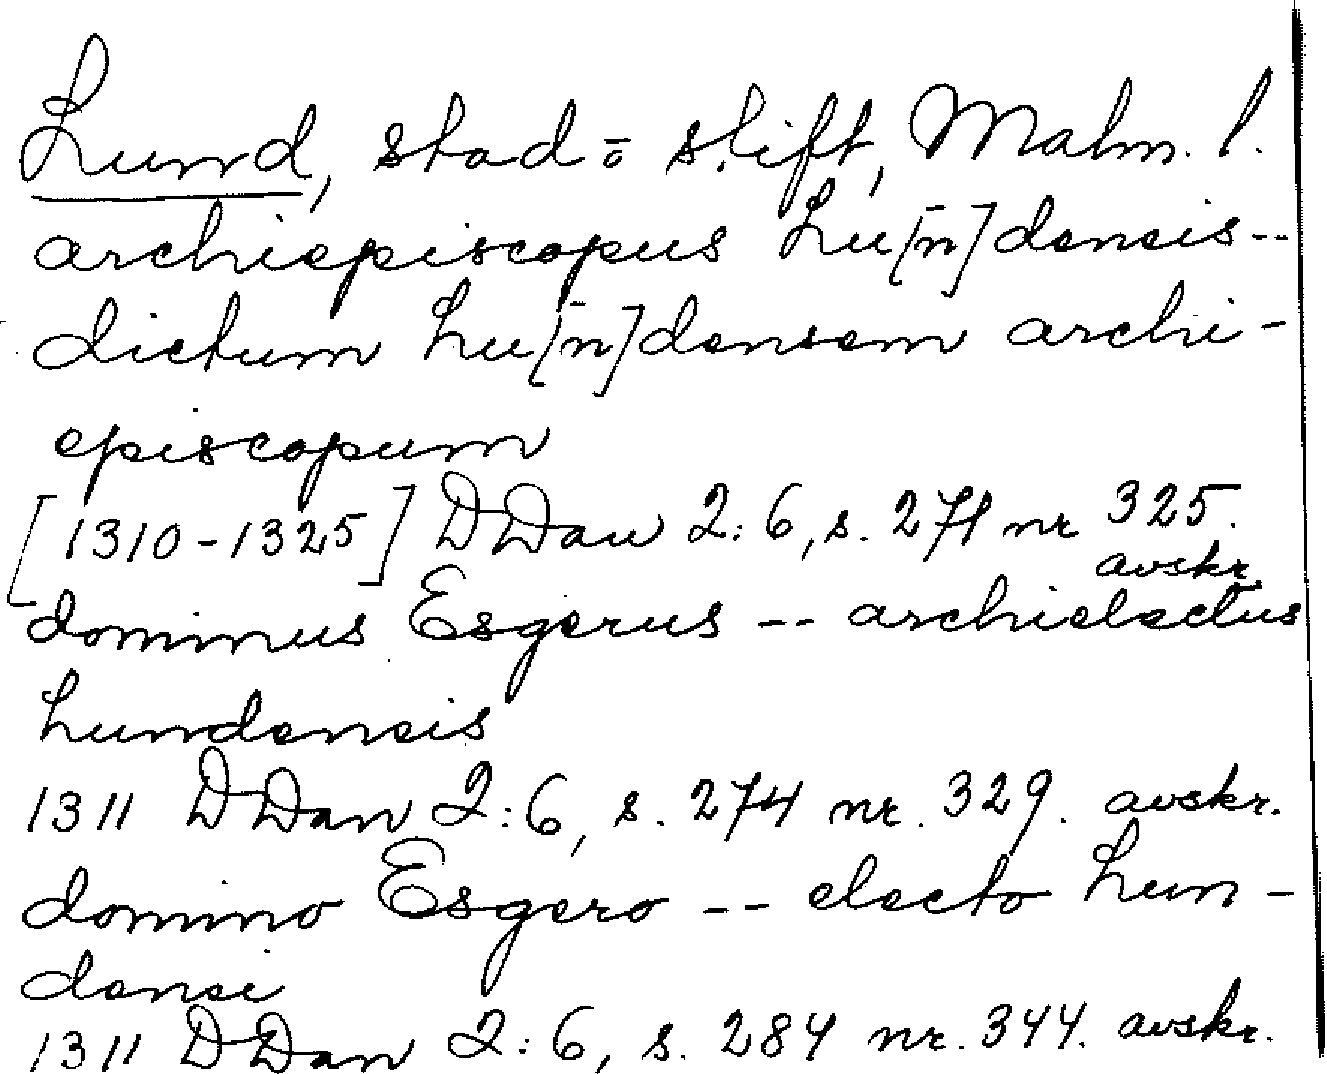 Lund, stad o slift, Malm. l.
archiepiscopus Lu[n]densis --
dictum Lu[n]densem archi-
episcopum
[1310-1325] DDan 2:6, s. 271 nr 325.
avskr.
dominus Esgerus -- archielectus
Lundensis
1311 DDan 2:6, s. 274 nr. 329. avskr.
domino Esgero -- electo Lun-
densi
1311 DDan 2:6, s. 284 nr. 344. avskr.